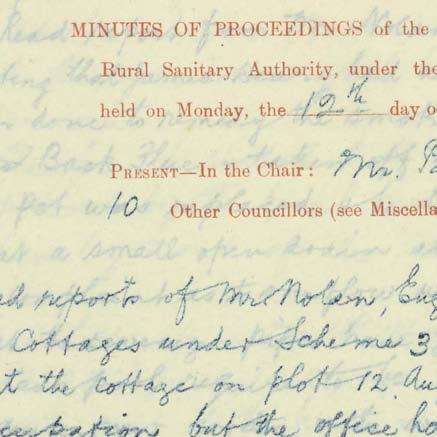 MINUTES OF PROCEEDINGS of the
Rural Sanitary Authority, under the
held on Monday, the 12th day o
PRESENT—In the Chair: Mr. Pa
10 Other Councillors (see Miscella
ad reports of Mr Nolan, Eng
Cottages under Scheme 3
t the cottage on plot 12. Au
cupation, but the office ho